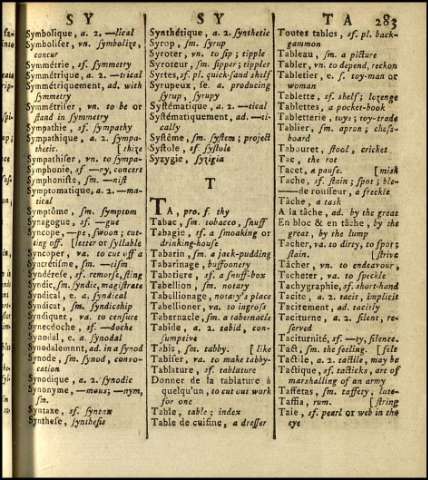 SY
SY
TA 283
Symbolique, a. 2. —lical
Symboliser, vn. symbolize,
concur
Symmétrie, sf. symmetry
Symmétrique, a. 2. —trical
Symmétriquement, ad. with
symmetry
Symmétriser, vn. to be or
stand in symmetry
Sympathie, sf. sympathy
Sympathique, a. 2. sympa-
thetic. [thize
Sympathiser, vn. to sympa-
Symphonie, sf —ry, concert
Symphoniste, sm. —nist
Symptomatique, a. 2. —ma-
tical
Symptôme, sm. symptom
Synagogue, sf. —gue
Syncope, —pe, swoon; cut-
ting off. [letter or syllable
Syncoper, va. to cut off a
Syncrétisme, sm. —ism
Syndérése, sf. remorse, sting
Syndic, sm. syndic, magistrate
Syndical, e, a. syndical
Syndicat, sm. syndicship
Syndiquer, va. to censure
Synecdoche, sf. —doche
Synodal, e, a. synodal
Synodalement, ad. in a synod
Synode, sm. synod, convo-
cation
Synodique, a. 2. synodic
Synonyme, —mous; —nym,
sm.
Syntaxe, sf. syntax
Synthese, synthesis
Synthétique, a. 2. synthetic
Syrop, sm. syrup
Syroter, vn. to sip; tipple
Syroteur, sm. sipper; tippler
Syrtes, sf. pl. quick-sand shelf
Syrupeux, se, a. producing
syrup, syrupy
Systématique, a. 2. —tical
Systématiquement, ad. —ti-
cally
Systême, sm. system; project
Systole, sf. systole
Syzygie, syzigia
T
TA, pro. f. thy
Tabac, sm. tobacco, snuff
Tabagie, sf. a smoaking or
drinking-house
Tabarin, sm. a jack-pudding
Tabarinage, buffoonery
Tabatiere, sf. a snuff-box
Tabellion, sm. notary
Tabellionage, notary's place
Tabellioner, va. to ingross
Tabernacle, sm. a tabernacle
Tabide, a. 2. tabid, con-
sumptive
Tabis, sm. tabby. [like
Tabiser, va. to make tabby-
Tablature, sf. tablature
Donner de la tablature à
quelqu'un, to cut out work
for one
Table, table; index
Table de cuisine, a dresser
Toutes tables, sf. pl. back-
gammon
Tableau, sm. a picture
Tabler, vn. to depend, reckon
Tabletier, e. s. toy-man or
woman
Tablette, sf. shelf; lozenge
Tablettes, a pocket-book
Tabletterie, toys; toy-trade
Tablier, sm. apron; chess-
board
Tabouret, stool, cricket
Tac, the rot
Tacet, a pause. [misk
Tache, sf. stain; spot; blo-
—de rousseur, a freckle
Tâche, a task
A la tâche, ad. by the great
En bloc & en tâche, by the
great, by the lump
Tacher, va. to dirty, to spot;
stain. [strive
Tâcher, vn. to endeavour,
Tacheter, va. to speckle
Tachygraphie, sf. short-hand
Tacite, a. 2. tacit, implicit
Tacitement, ad. tacitly
Taciturne, a. 2. silent, re-
served
Taciturnité, sf. —ty, silence.
Tact, sm. the feeling. [felt
Tactile, a. 2. tactile, may be
Tactique, sf. tacticks, art of
marshalling of an army
Taffetas, sm. taffety, lute-
Taffia, rum. [string
Taie, sf. pearl or web in the
eye